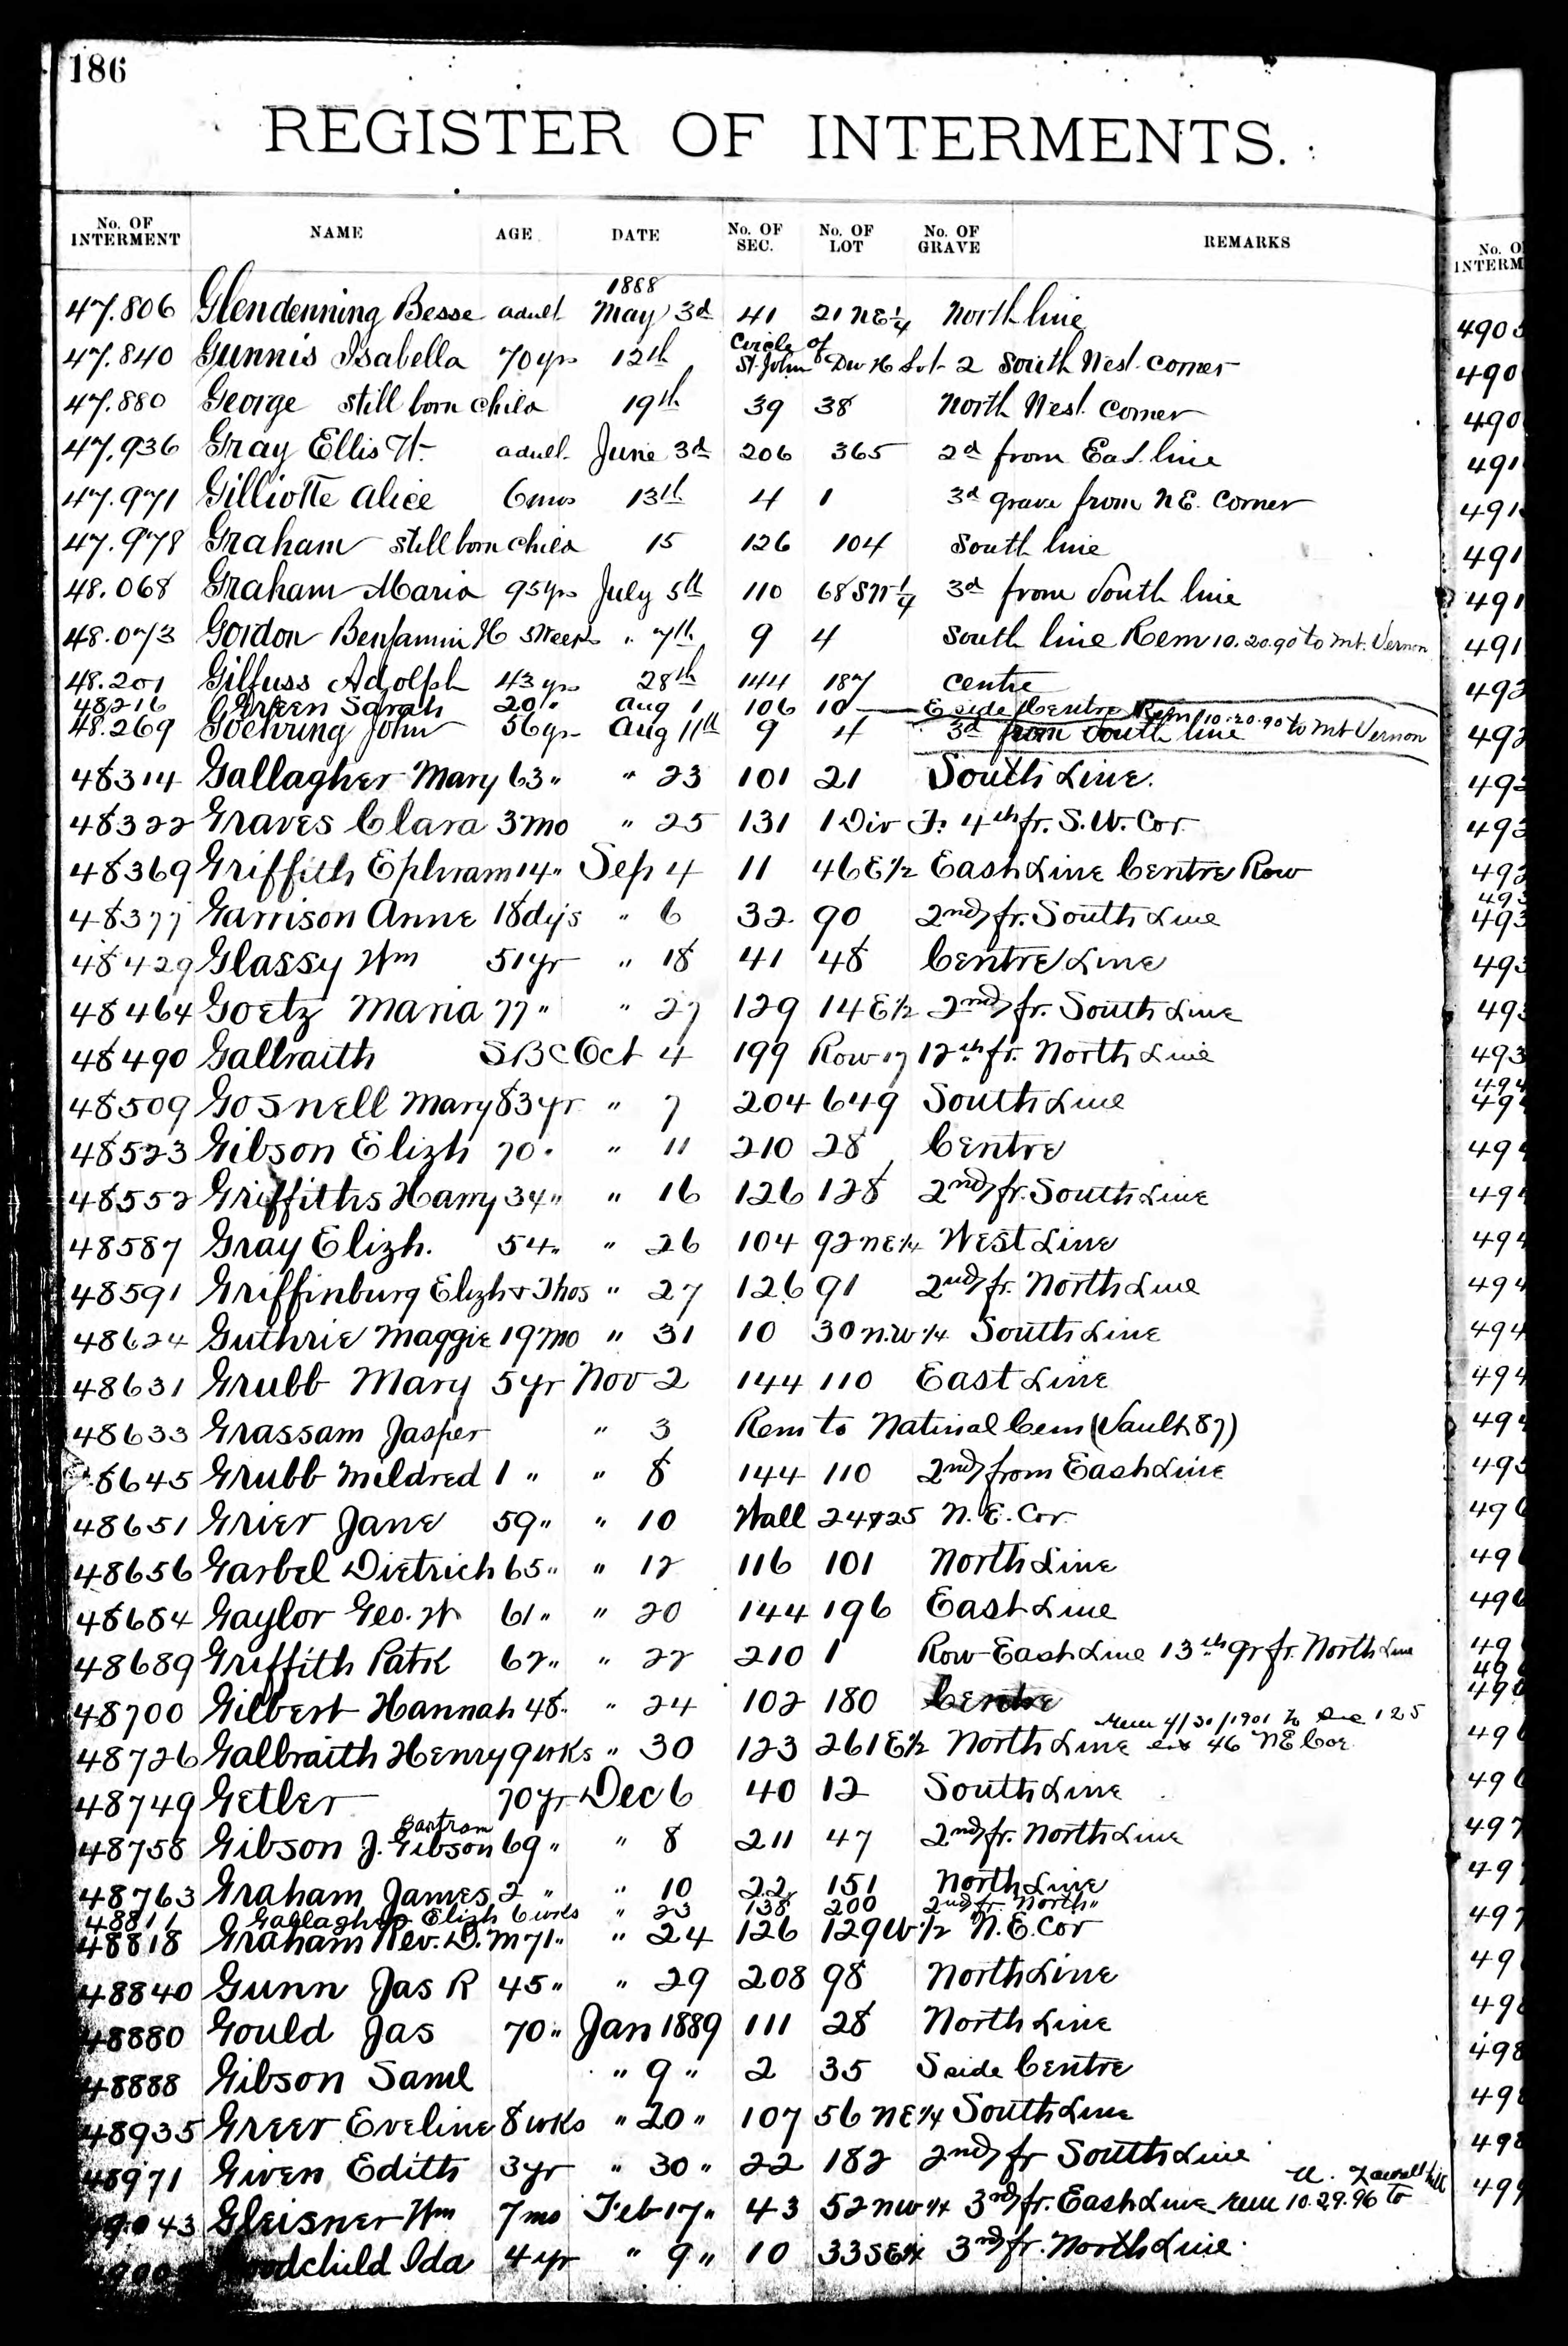 186
REGISTER OF INTERMENTS.
No. OF INTERMENT NAME AGE DATE No. OF SEC. No. OF LOT No. OF GRAVE REMARKS
1888
47.806 Glendenning Besse adult May 3d 41 21 NE 1/4 North line
47.840 Gunnis Isabella 70 yrs 12th Circle of St. John Div H Lot 2 South West corner
47.880 George still born child 19th 39 38 North West corner
47.936 Gray Ellis H. adult June 3d 206 365 2d from East line
47.971 Gilliotte Alice 6 mos 13th 4 1 3d grave from N.E. Corner
47.978 Graham still born child 15 126 104 South line
48.068 Graham Maria 95 yrs July 5th 110 68 SW 1/4 3d from South line
48.073 Gordon Benjamin H 5 Weeks " 7th 9 4 South line Rem 10.20.90 to Mt. Vernon
48.201 Gilfuss Adolph 43 yrs 28th 144 187 Centre
48216 Green Sarah 20 " Aug 1 106 10 E side Centre
48.269 Goehring John 56 yrs Aug 11th 9 4 3d from South line Rem 10.20.90 to Mt Vernon
48314 Gallagher Mary 63 " " 23 101 21 South Line.
48322 Graves Clara 3 mo " 25 131 1 Div F. 4th fr. S.W. Cor
48369 Griffith Ephram 14 " Sep 4 11 46 E 1/2 East Line Centre Row
48377 Garrison Anne 18 dys " 6 32 90 2nd fr. South Line
48429 Glassy Wm 51 yr " 18 41 48 Centre Line
48464 Goetz Maria 77 " " 27 129 14 E 1/2 2nd fr. South Line
48490 Galbraith SBC Oct 4 199 Row 17 12th fr. North Line
48509 Gosnell Mary 83 yr " 7 204 649 South Line
48523 Gibson Elizh 70 " " 11 210 28 Centre
48552 Griffiths Harry 34 " " 16 126 128 2nd fr. South Line
48587 Gray Elizh. 54 " " 26 104 92 NE 1/4 West Line
48591 Griffinburg Elizh & Thos " 27 126 91 2nd fr. North Line
48624 Guthrie Maggie 19 mo " 31 10 30 N.W 1/4 South Line
48631 Grubb Mary 5 yr Nov 2 144 110 East Line
48633 Grassam Jasper " 3 Rem to Natinal Cem (Vault 87)
48645 Grubb Mildred 1 " " 8 144 110 2nd from East Line
48651 Grier Jane 59 " " 10 Wall 24 & 25 N.E. Cor
48656 Garbel Dietrich 65 " " 12 116 101 North Line
48684 Gaylor Geo. W 61 " " 20 144 196 East Line
48689 Griffith Patk 62 " " 22 210 1 Row East Line 13th gr fr. North Line
48700 Gilbert Hannah 48 " " 24 102 180 Centre
48726 Galbraith Henry 9 wks " 30 123 261 E 1/2 North Line Rem 4/30/1901 to Sec 125 Lot 46 NE Cor
48749 Getler 70 yr Dec 6 40 12 South Line
48758 Gibson J. Bartram Gibson 69 " " 8 211 47 2nd fr. North Line
48763 Graham James 2 " " 10 22 151 North Line
48811 Gallagher Elizh 6 wks " 23 138 200 2nd fr. North "
48818 Graham Rev. D. M 71 " " 24 126 129 W 1/2 N.E. Cor
48840 Gunn Jas R 45 " " 29 208 98 North Line
48880 Gould Jas 70 " Jan 1889 111 28 North Line
48888 Gibson Saml " 9 " 2 35 S side Centre
48935 Greer Eveline 8 wks " 20 " 107 56 NE 1/4 South Line
48971 Given Edith 3 yr " 30 " 22 182 2nd fr South Line
43 Gleisner Wm 7 mo Feb 17 " 43 52 NW 1/4 3rd fr. East Line Rem 10.29.96 to
Goodchild Ida 4 yr " 9 " 10 33 SE 1/4 3rd fr. North Line